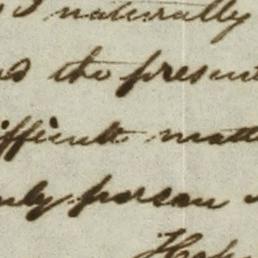 I naturally
the present
difficult matt
only person
Hop